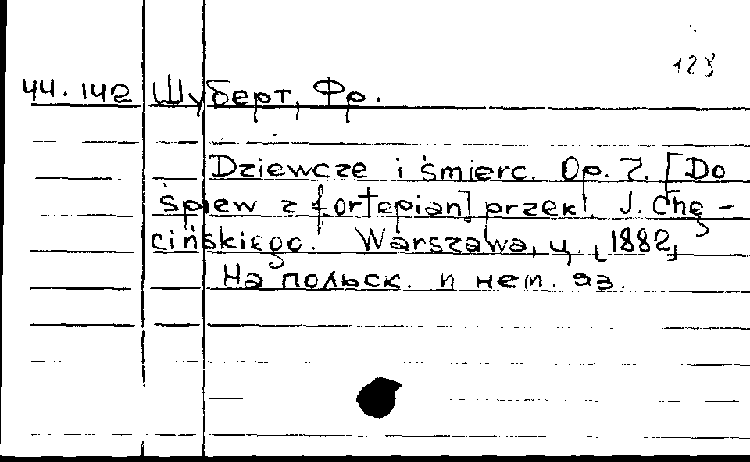 123
44.142 Шуберт, Фр.
Dziewcze i śmierc. Op. 7. [Do
śpiew z fortepian] przekł. J. Chę-
cińskiego. Warszawa, ц. [1882]
На польск. и нем. яз.